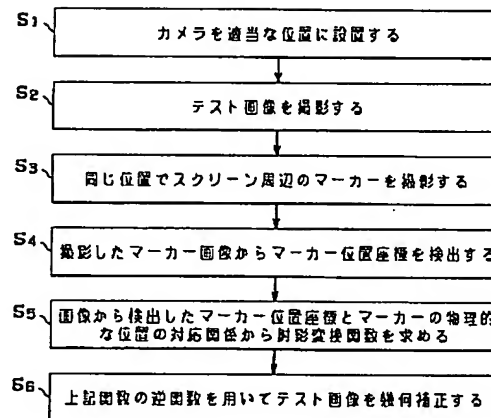 S1
カメラを適当な位置に設置する
S2
テスト画像を撮影する
S3
同じ位置でスクリーン周辺のマーカーを撮影する
S4
撮影したマーカー画像からマーカー位置座標を検出する
S5
画像から検出したマーカー位置座標とマーカーの物理的
な位置の対応関係から射影変換関数を求める
S6
上記関数の逆関数を用いてテスト画像を幾何補正する